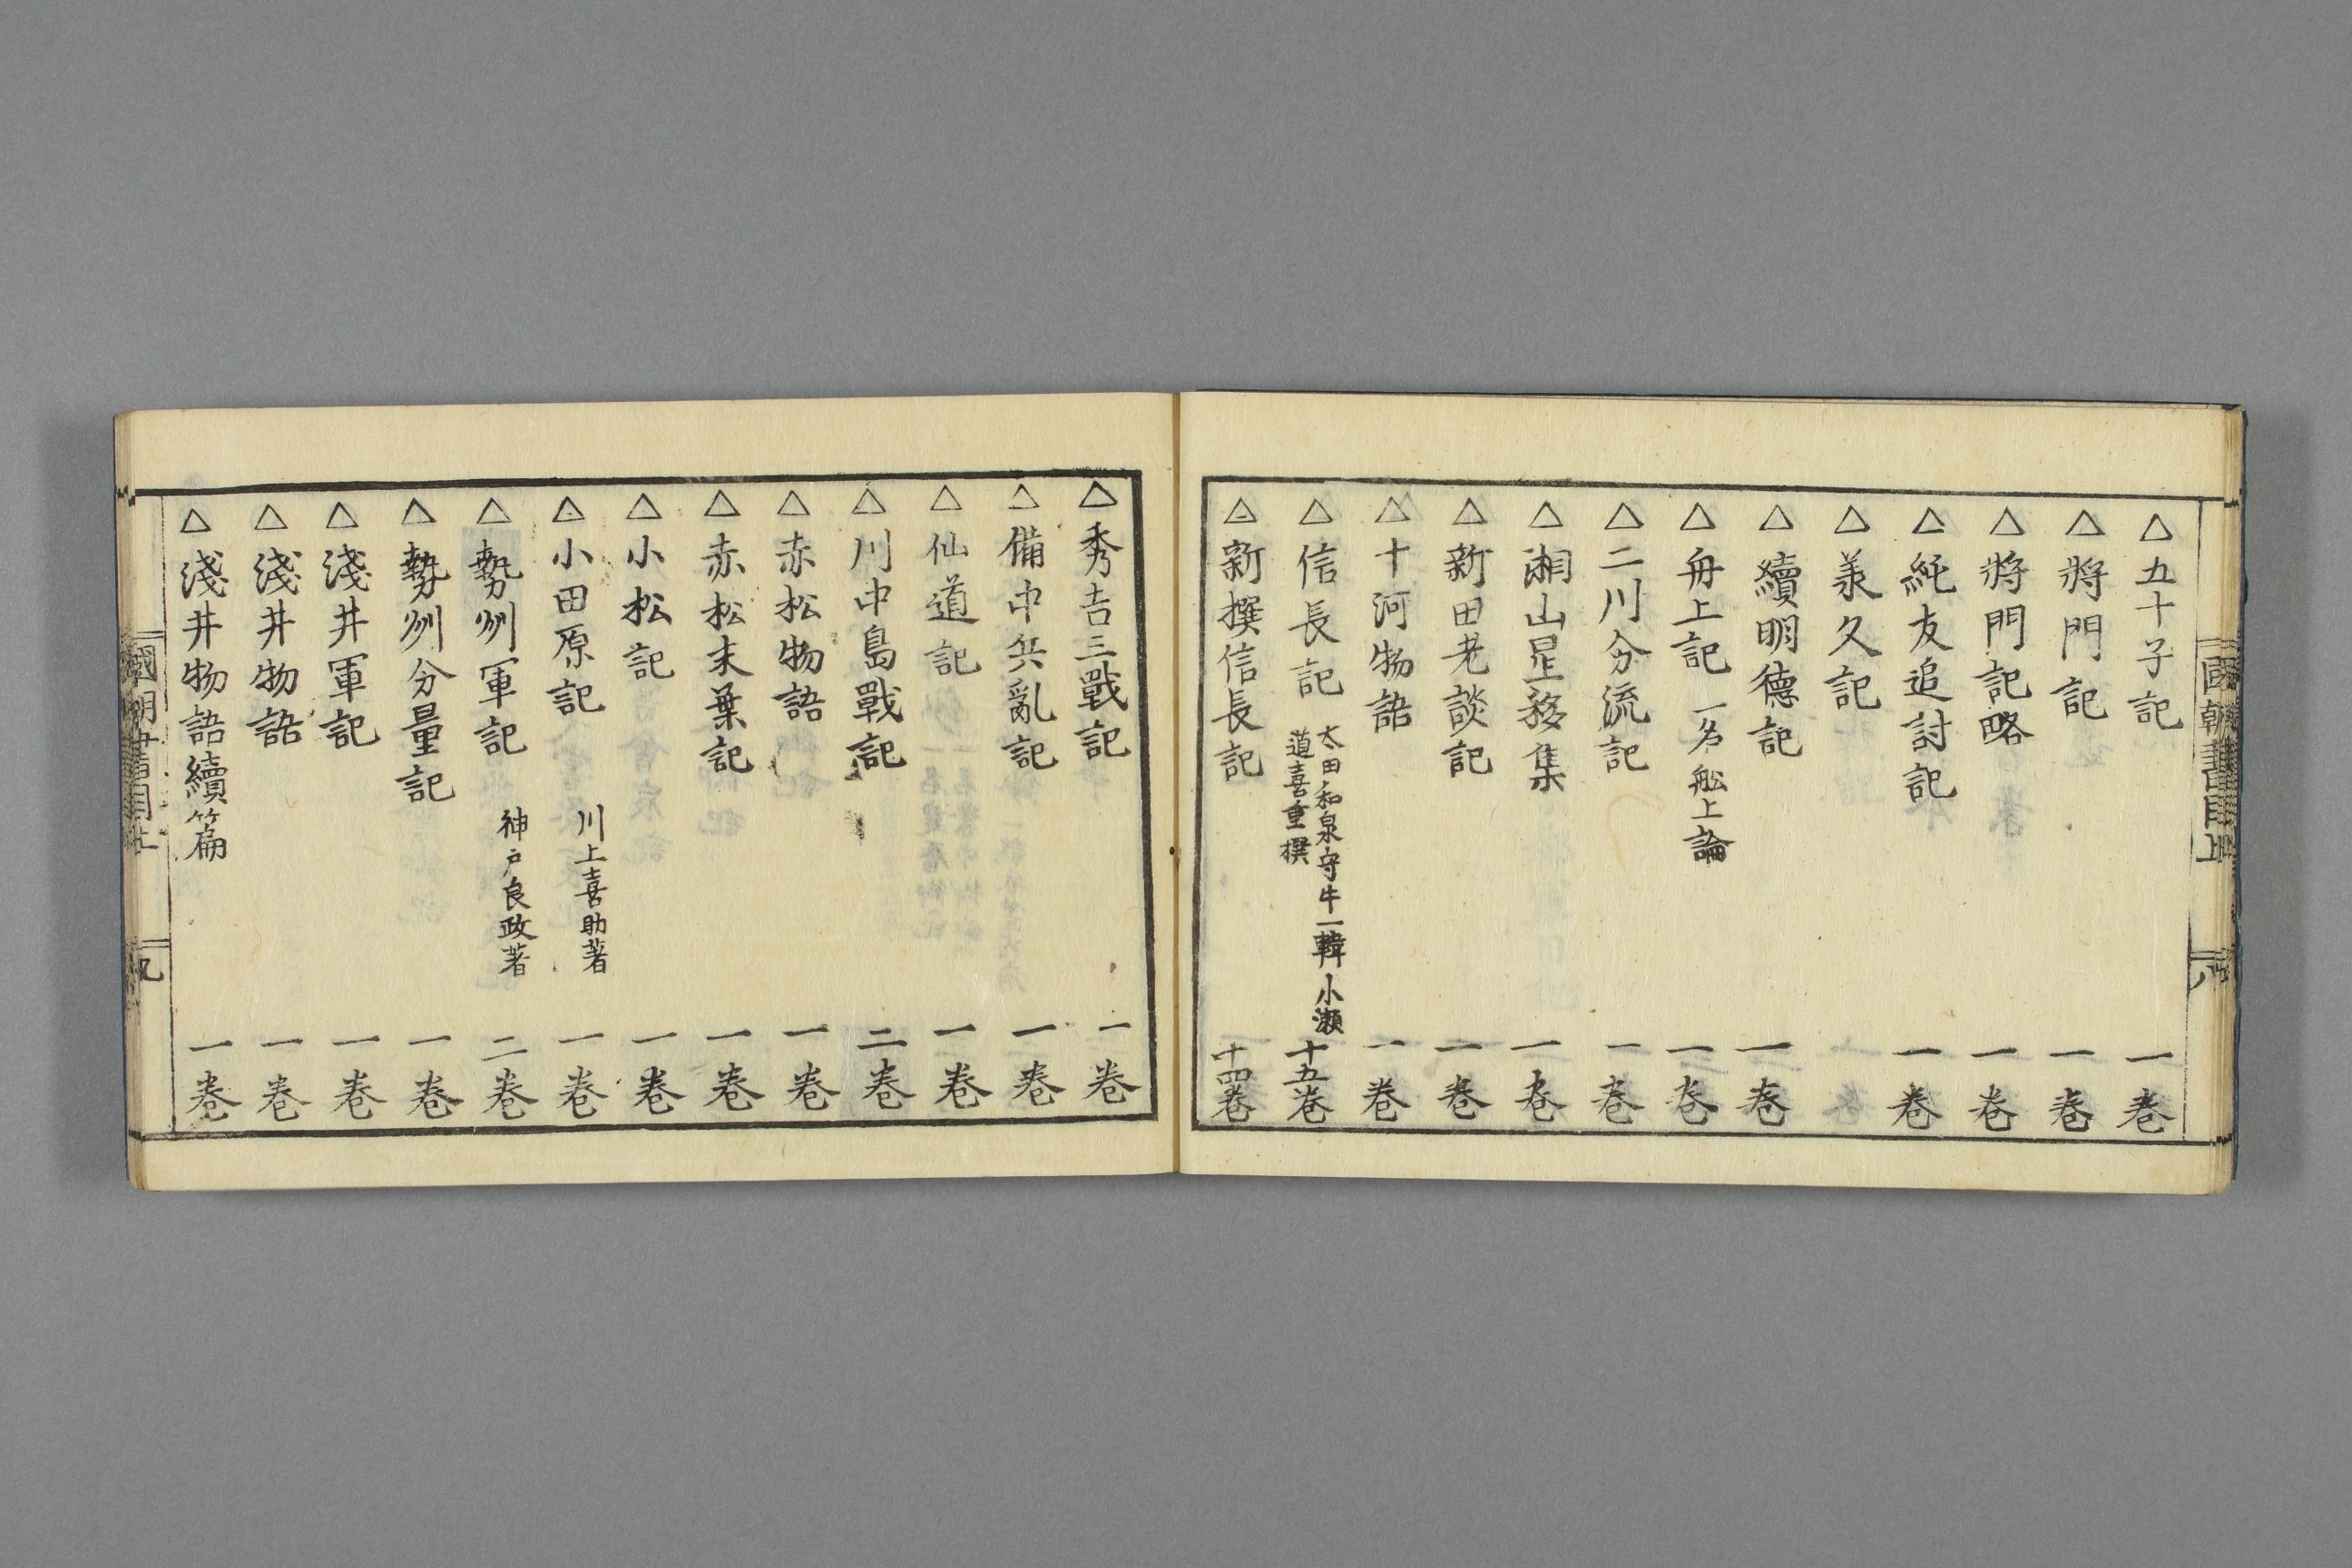 國朝書目上
八
△五十子記 一巻
△將門記 一巻
△將門記略 一巻
△純友追討記 一巻
△羕久記
△續明德記 一巻
△舟上記 一名舩上論 一巻
△二川分流記 一巻
△湘山星移集 一巻
△新田老談記 一巻
△十河物語 一巻
△信長記 太田和泉守牛一輯小瀬 十五巻
道喜重撰
△新撰信長記 十四巻
△秀吉三戰記 一巻
△備中兵亂記 一巻
△仙道記 一巻
△川中島戰記 二巻
△赤松物語 一巻
△赤松末葉記 一巻
△小松記 一巻
△小田原記 川上喜助著 一巻
△勢州軍記 神戸良政著 二巻
△勢州分量記 一巻
△淺井軍記 一巻
△淺井物語 一巻
△淺井物語續篇 一巻
國朝書目上
九